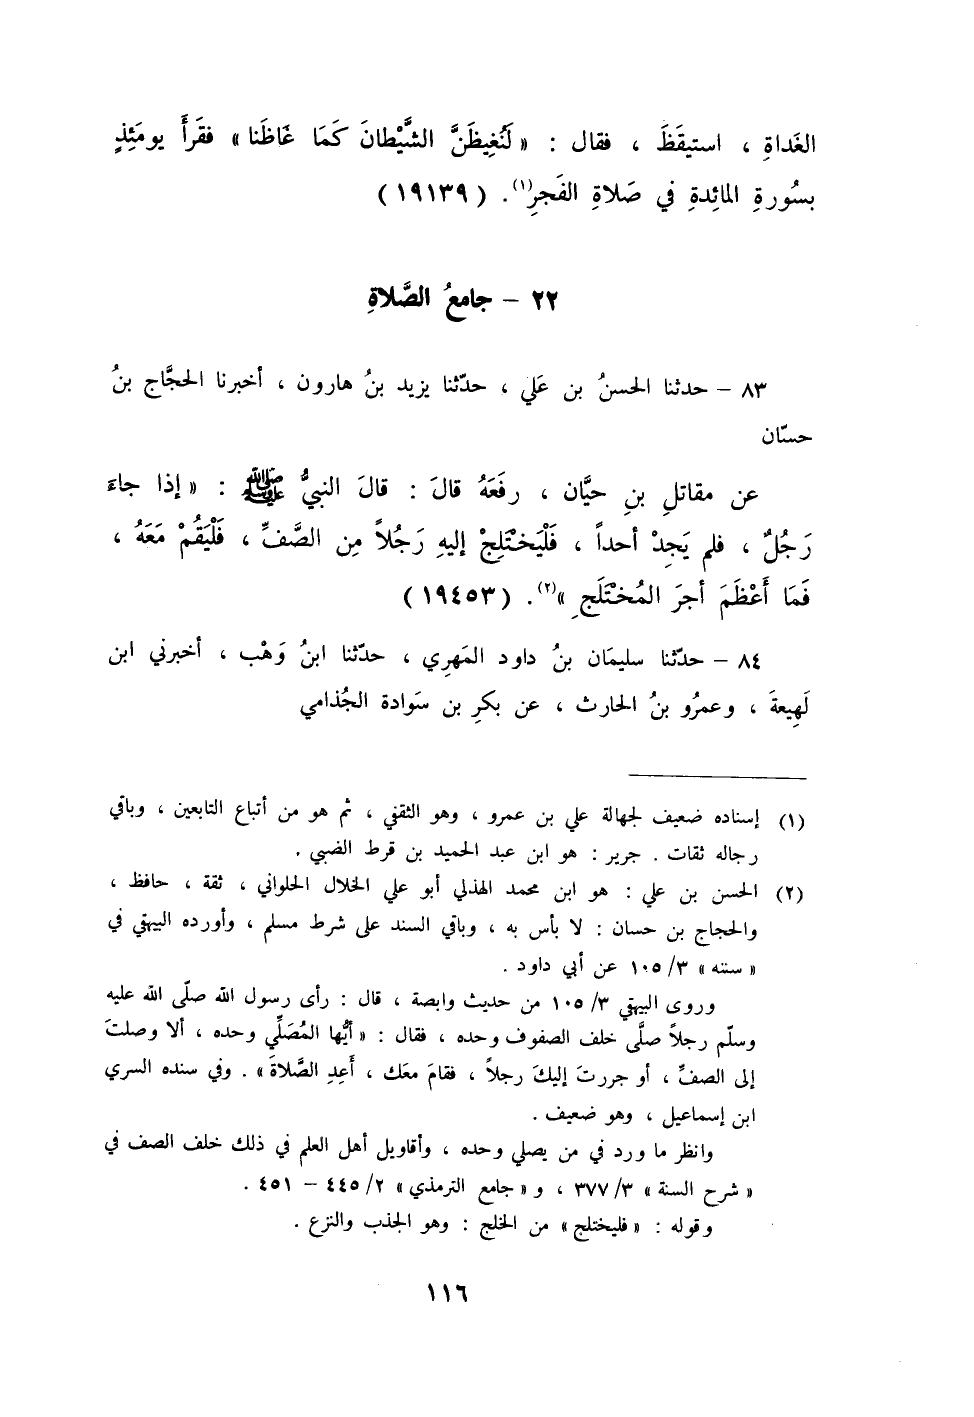 الغَداةِ ، استيقَظَ ، فقال : « لَنُغِيظَنَّ الشَّيْطانَ كَمَا غَاظَنا » فقَرأَ يومَئِذٍ
بسُورةِ المائِدةِ في صَلاةِ الفَجرِ(١). ( ١٩١٣٩ )
٢٢ – جامعُ الصَّلاةِ
٨٣ – حدثنا الحسنُ بن عَلي ، حدّثنا يزيد بنُ هارون ، أخبرنا الحجَّاج بنُ
حسّان
عن مقاتلِ بنِ حيَّان ، رفَعَهُ قالَ : قالَ النبيُّ ﷺ : « إذا جاءَ
رَجُلٌ ، فلم يَجِدْ أحداً ، فَلْيَخْتَلِجْ إليهِ رَجُلاً مِن الصَّفِّ ، فَلْيَقُمْ مَعَهُ ،
فَمَا أَعْظَمَ أجرَ المُخْتَلَجِ »(٢). ( ١٩٤٥٣ )
٨٤ – حدّثنا سليمَان بنُ داود المَهرِي ، حدّثنا ابنُ وَهْب ، أخبرني ابن
لَهِيعةَ ، وعمرُو بنُ الحارث ، عن بكرِ بن سَوادة الجُذامي
(١) إسناده ضعيف لجهالة علي بن عمرو ، وهو الثقفي ، ثم هو من أتباع التابعين ، وباقي
رجاله ثقات . جرير : هو ابن عبد الحميد بن قرط الضبي .
(٢) الحسن بن علي : هو ابن محمد الهذلي أبو علي الخلال الحلواني ، ثقة ، حافظ ،
والحجاج بن حسان : لا بأس به ، وباقي السند على شرط مسلم ، وأورده البيهقي في
« سننه » ٣/ ١٠٥ عن أبي داود .
وروى البيهقي ٣/ ١٠٥ من حديث وابصة ، قال : رأى رسول الله صلّى الله عليه
وسلّم رجلاً صلَّى خلف الصفوف وحده ، فقال : « أيُّها المُصَلِّي وحده ، ألا وصلتَ
إلى الصفِّ ، أو جررتَ إليكَ رجلاً ، فقامَ معَك ، أَعِدِ الصَّلاةَ » . وفي سنده السري
ابن إسماعيل ، وهو ضعيف .
وانظر ما ورد في من يصلي وحده ، وأقاويل أهل العلم في ذلك خلف الصف في
« شرح السنة » ٣/ ٣٧٧ ، و « جامع الترمذي » ٢/ ٤٤٥ – ٤٥١ .
وقوله : « فليختلج » من الخلج : وهو الجذب والنزع .
١١٦